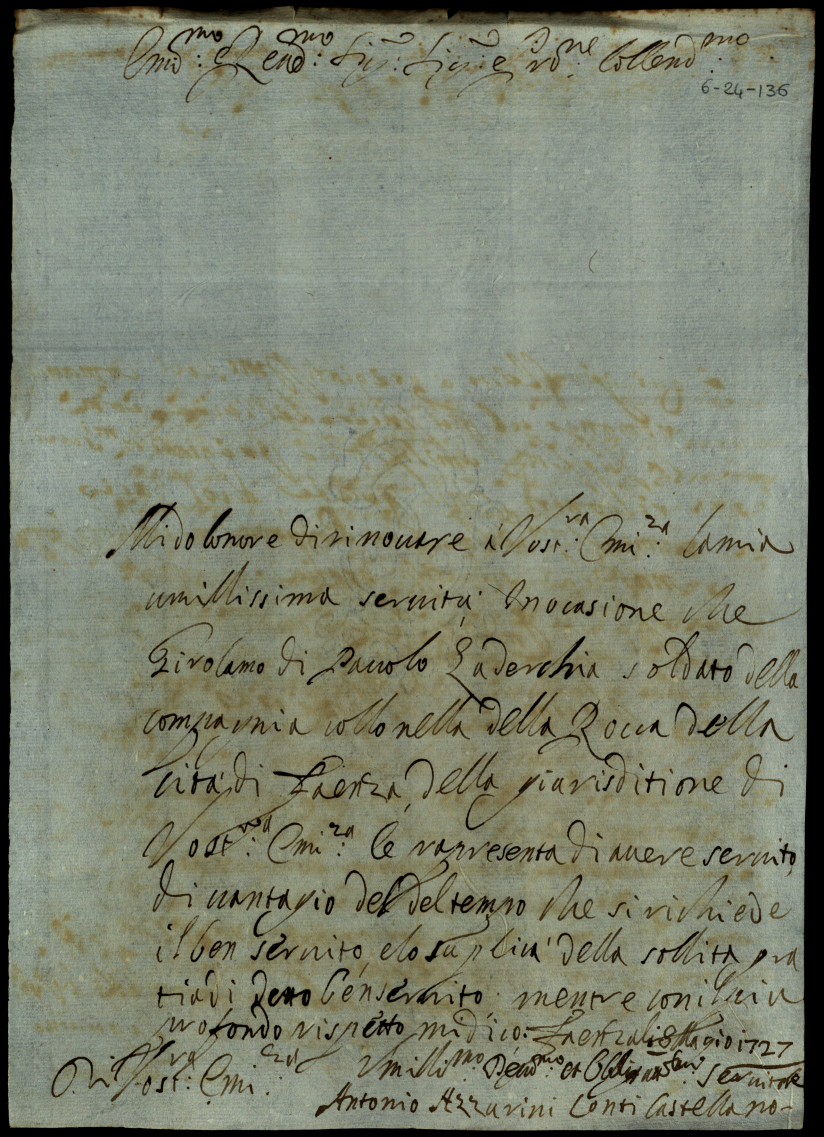 Emi:mo e Revd:mo Sig: Sig: e Prone Collend:mo
6-24-136
Mi do lonore di rinouare á Vost:ra Emi:za la mia
umillissima seruitú Inocasione che
Girolamo di Pauolo Laderchia soldato della
compagnia collonella della Rocca della
Citá di Faenza, della giurisditione di
Vost:ra Emi:za le rapresenta di auere seruito
di uantagio del del tempo che si richiede
il ben seruito, e lo suplica della sollita gra
tia di detto Benseruito mentre con il piu
profondo rispetto mi dico: Faenza li 8 Magio 1727
Di Vost:ra Emi:za Umilli:mo Deuo:mo et Obbli Seruitore
Antonio Azzurini Conti Castellano-